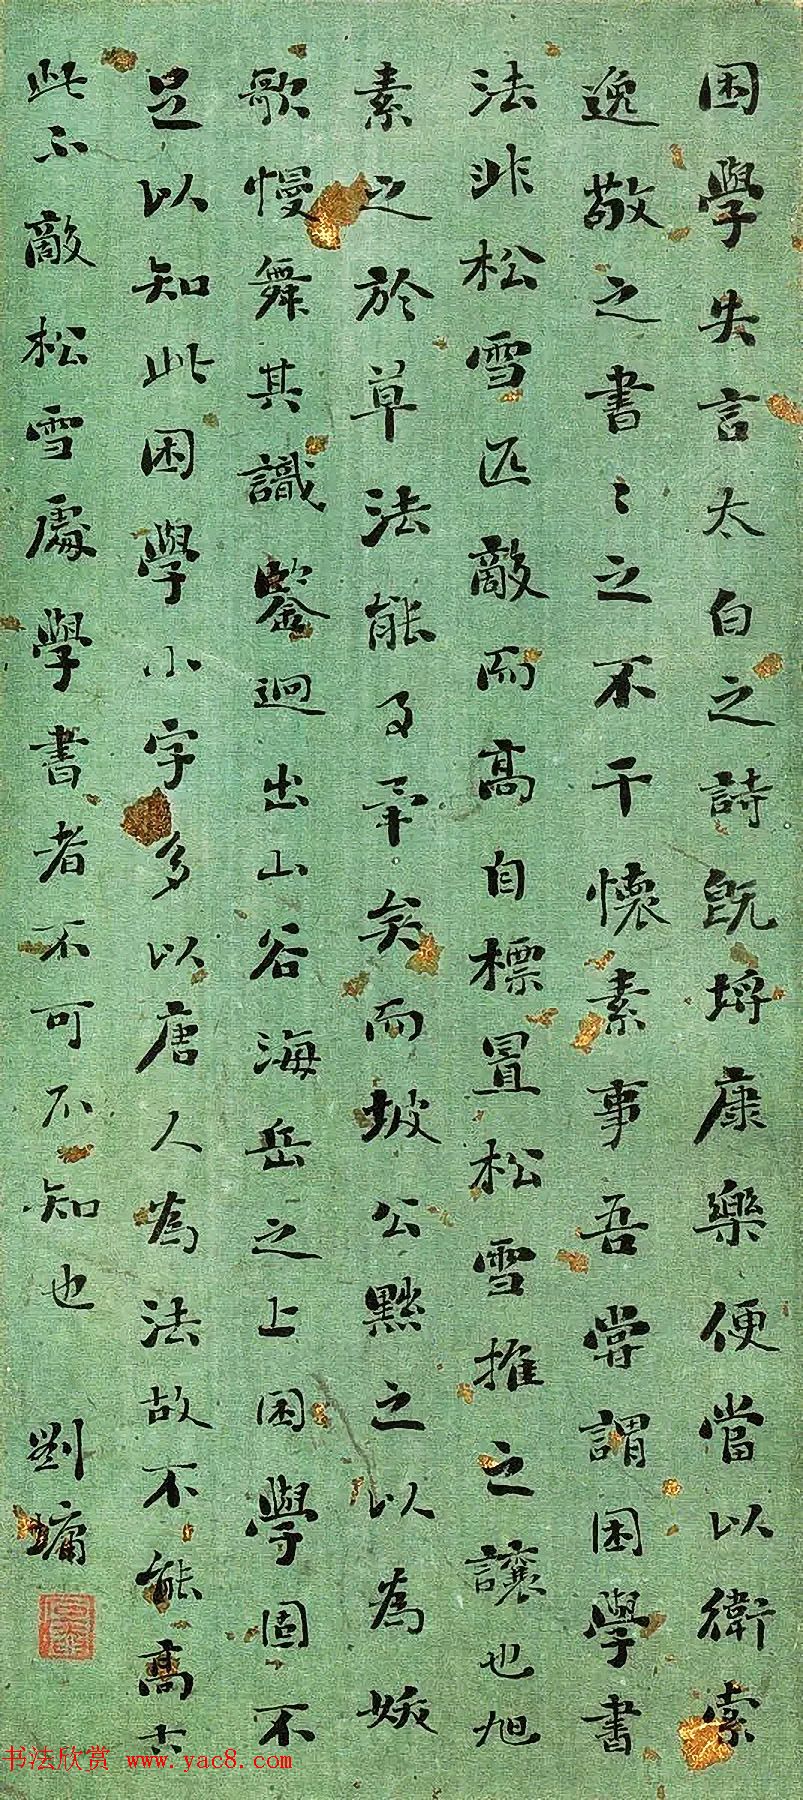 困學失言太白之詩既埒康樂便當以衛索
逸敬之書〻之不干懷素事吾嘗謂困學書
法非松雪匹敵而高自標置松雪推之讓也旭
素之於草法能事畢矣而坡公黜之以為妖
歌慢舞其識鑒迥出山谷海岳之上困學固不
足以知此困學小字多以唐人為法故不能高古
此不敵松雪處學書者不可不知也
劉墉
书法欣赏 www.yac8.com